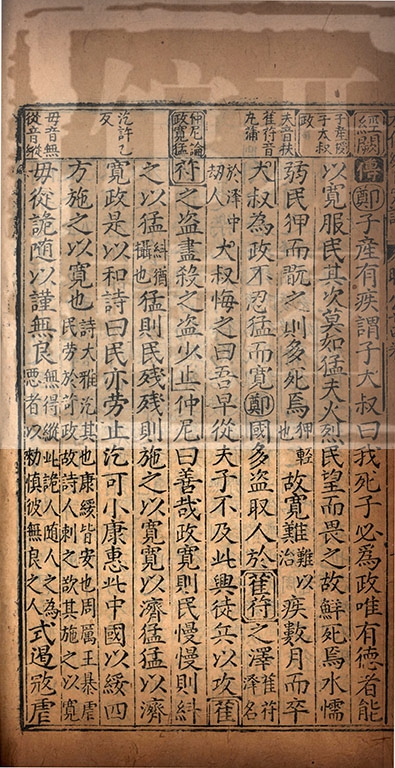 經闕傳鄭子產有疾謂子大叔曰我死子必為政唯有德者能
以寬服民其次莫如猛夫火烈民望而畏之故鮮死焉水懦
夫音扶
萑苻音
丸蒲
弱民狎而翫之則多死焉狎輕也故寬難難以治疾數月而卒
大叔為政不忍猛而寬鄭國多盜取人於萑苻之澤萑苻澤名
於澤中劫人大叔悔之曰吾早從夫子不及此興徒兵以攻萑
仲尼論
政寬猛
苻之盜盡殺之盜少止仲尼曰善哉政寬則民慢慢則糾
之以猛糾猶攝也猛則民殘殘則施之以寬寬以濟猛猛以濟
汔許乙
反
寬政是以和詩曰民亦勞止汔可小康惠此中國以綏四
方施之以寬也詩大雅汔其也康綏皆安也周厲王暴虐民勞於苛政故詩人刺之欲其施之以寬
毋音無
從音縱
毋從詭隨以謹無良無得縱此詭人隨人之為惡者以勑慎彼無良之人式遏寇虐